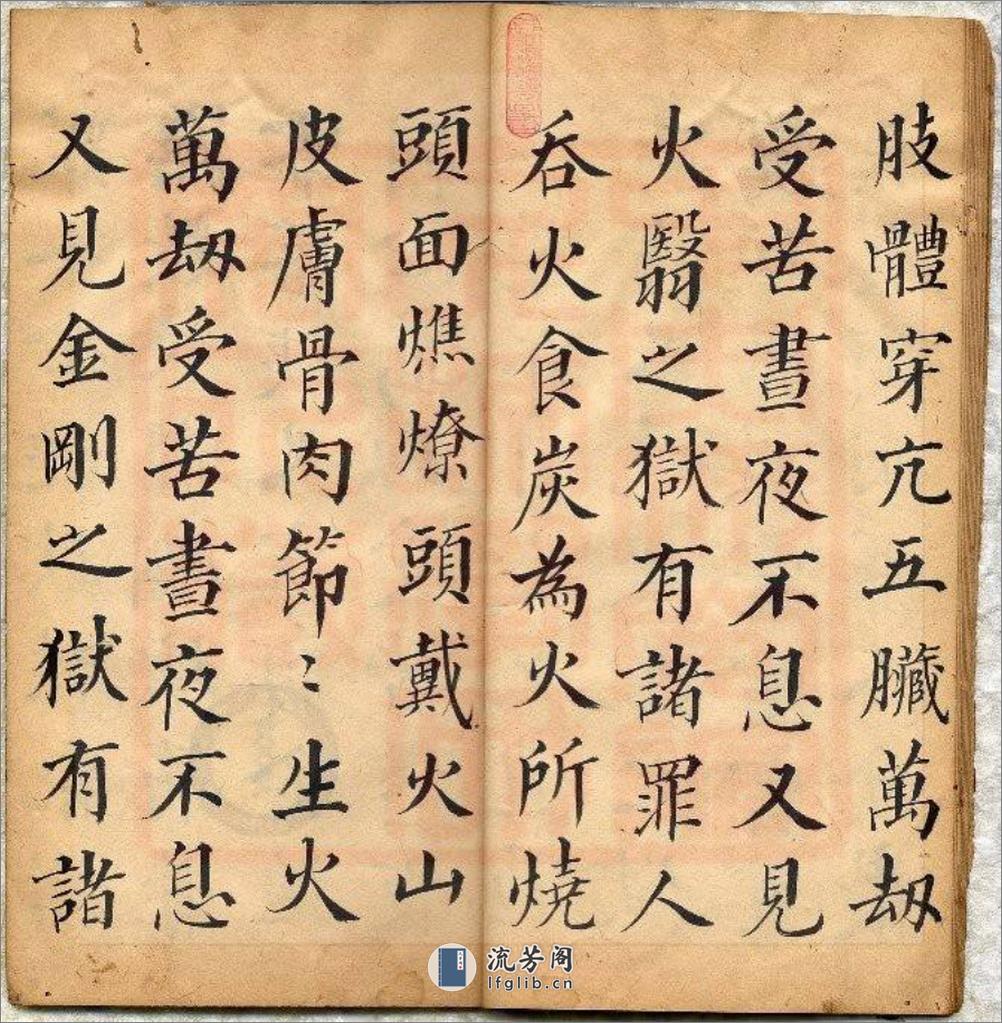 肢體穿亢五臟萬劫
受苦晝夜不息又見
火翳之獄有諸罪人
吞火食炭為火所燒
頭面燋燎頭戴火山
皮膚骨肉節〻生火
萬劫受苦晝夜不息
又見金剛之獄有諸
流芳阁
lfglib.cn